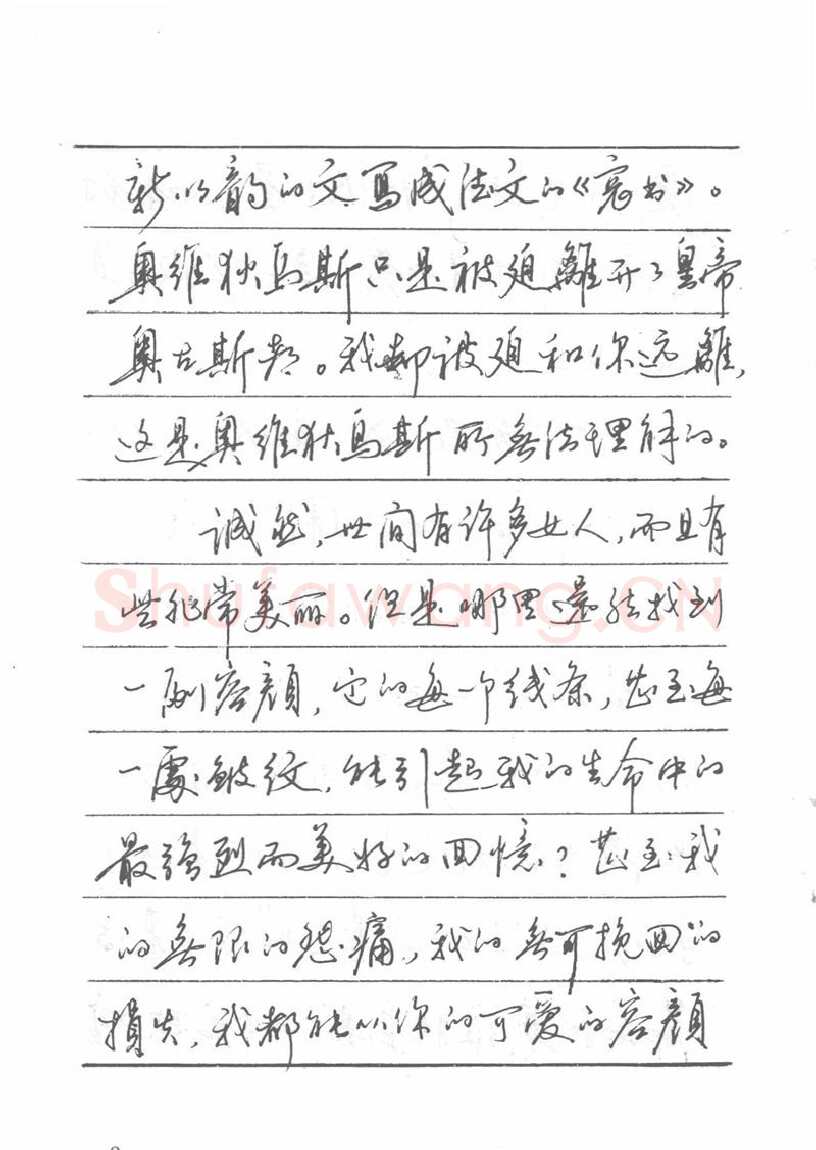 新以韵的文写成法文的《哀书》。
奥維狄烏斯只是被迫離开了皇帝
奥古斯都。我却被迫和你远離,
这是奥維狄烏斯所無法理解的。
誠然,世间有许多女人,而且有
些非常美丽。但是哪里還能找到
一副容顏,它的每一个线条,甚至每
一處皱纹,能引起我的生命中的
最強烈而美好的回憶?甚至我
的無限的悲痛,我的無可挽回的
損失,我都能从你的可爱的容顏
Shufawang.CN